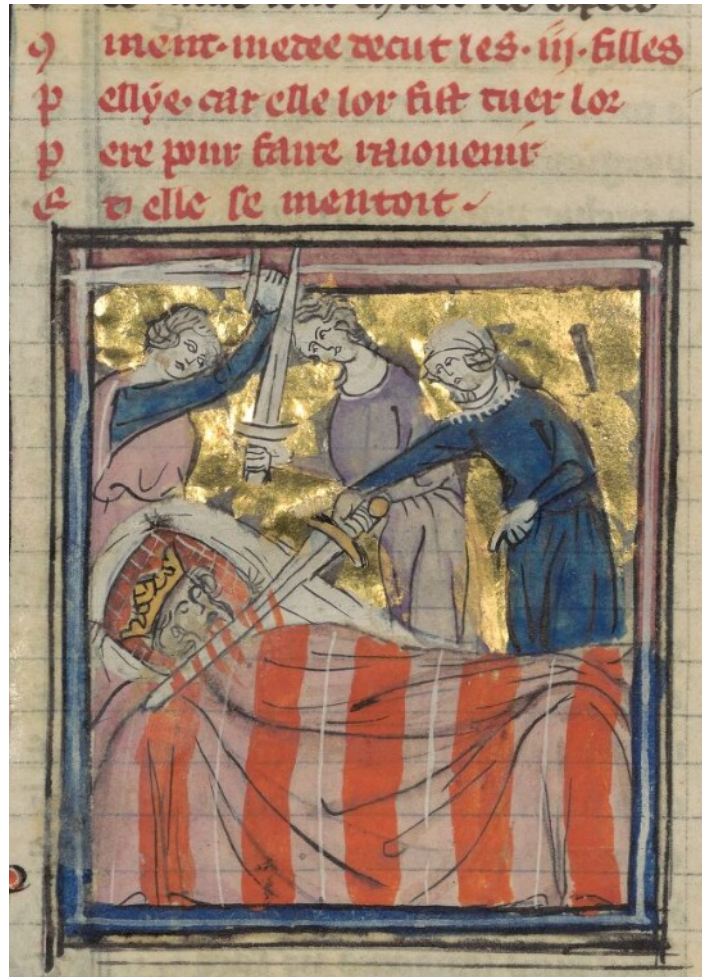 ⁊ment·medee decut les·iij·filles
pellye·car elle lor fist tuer lor
pere pour faire raiouenir
Et elle se mentoit